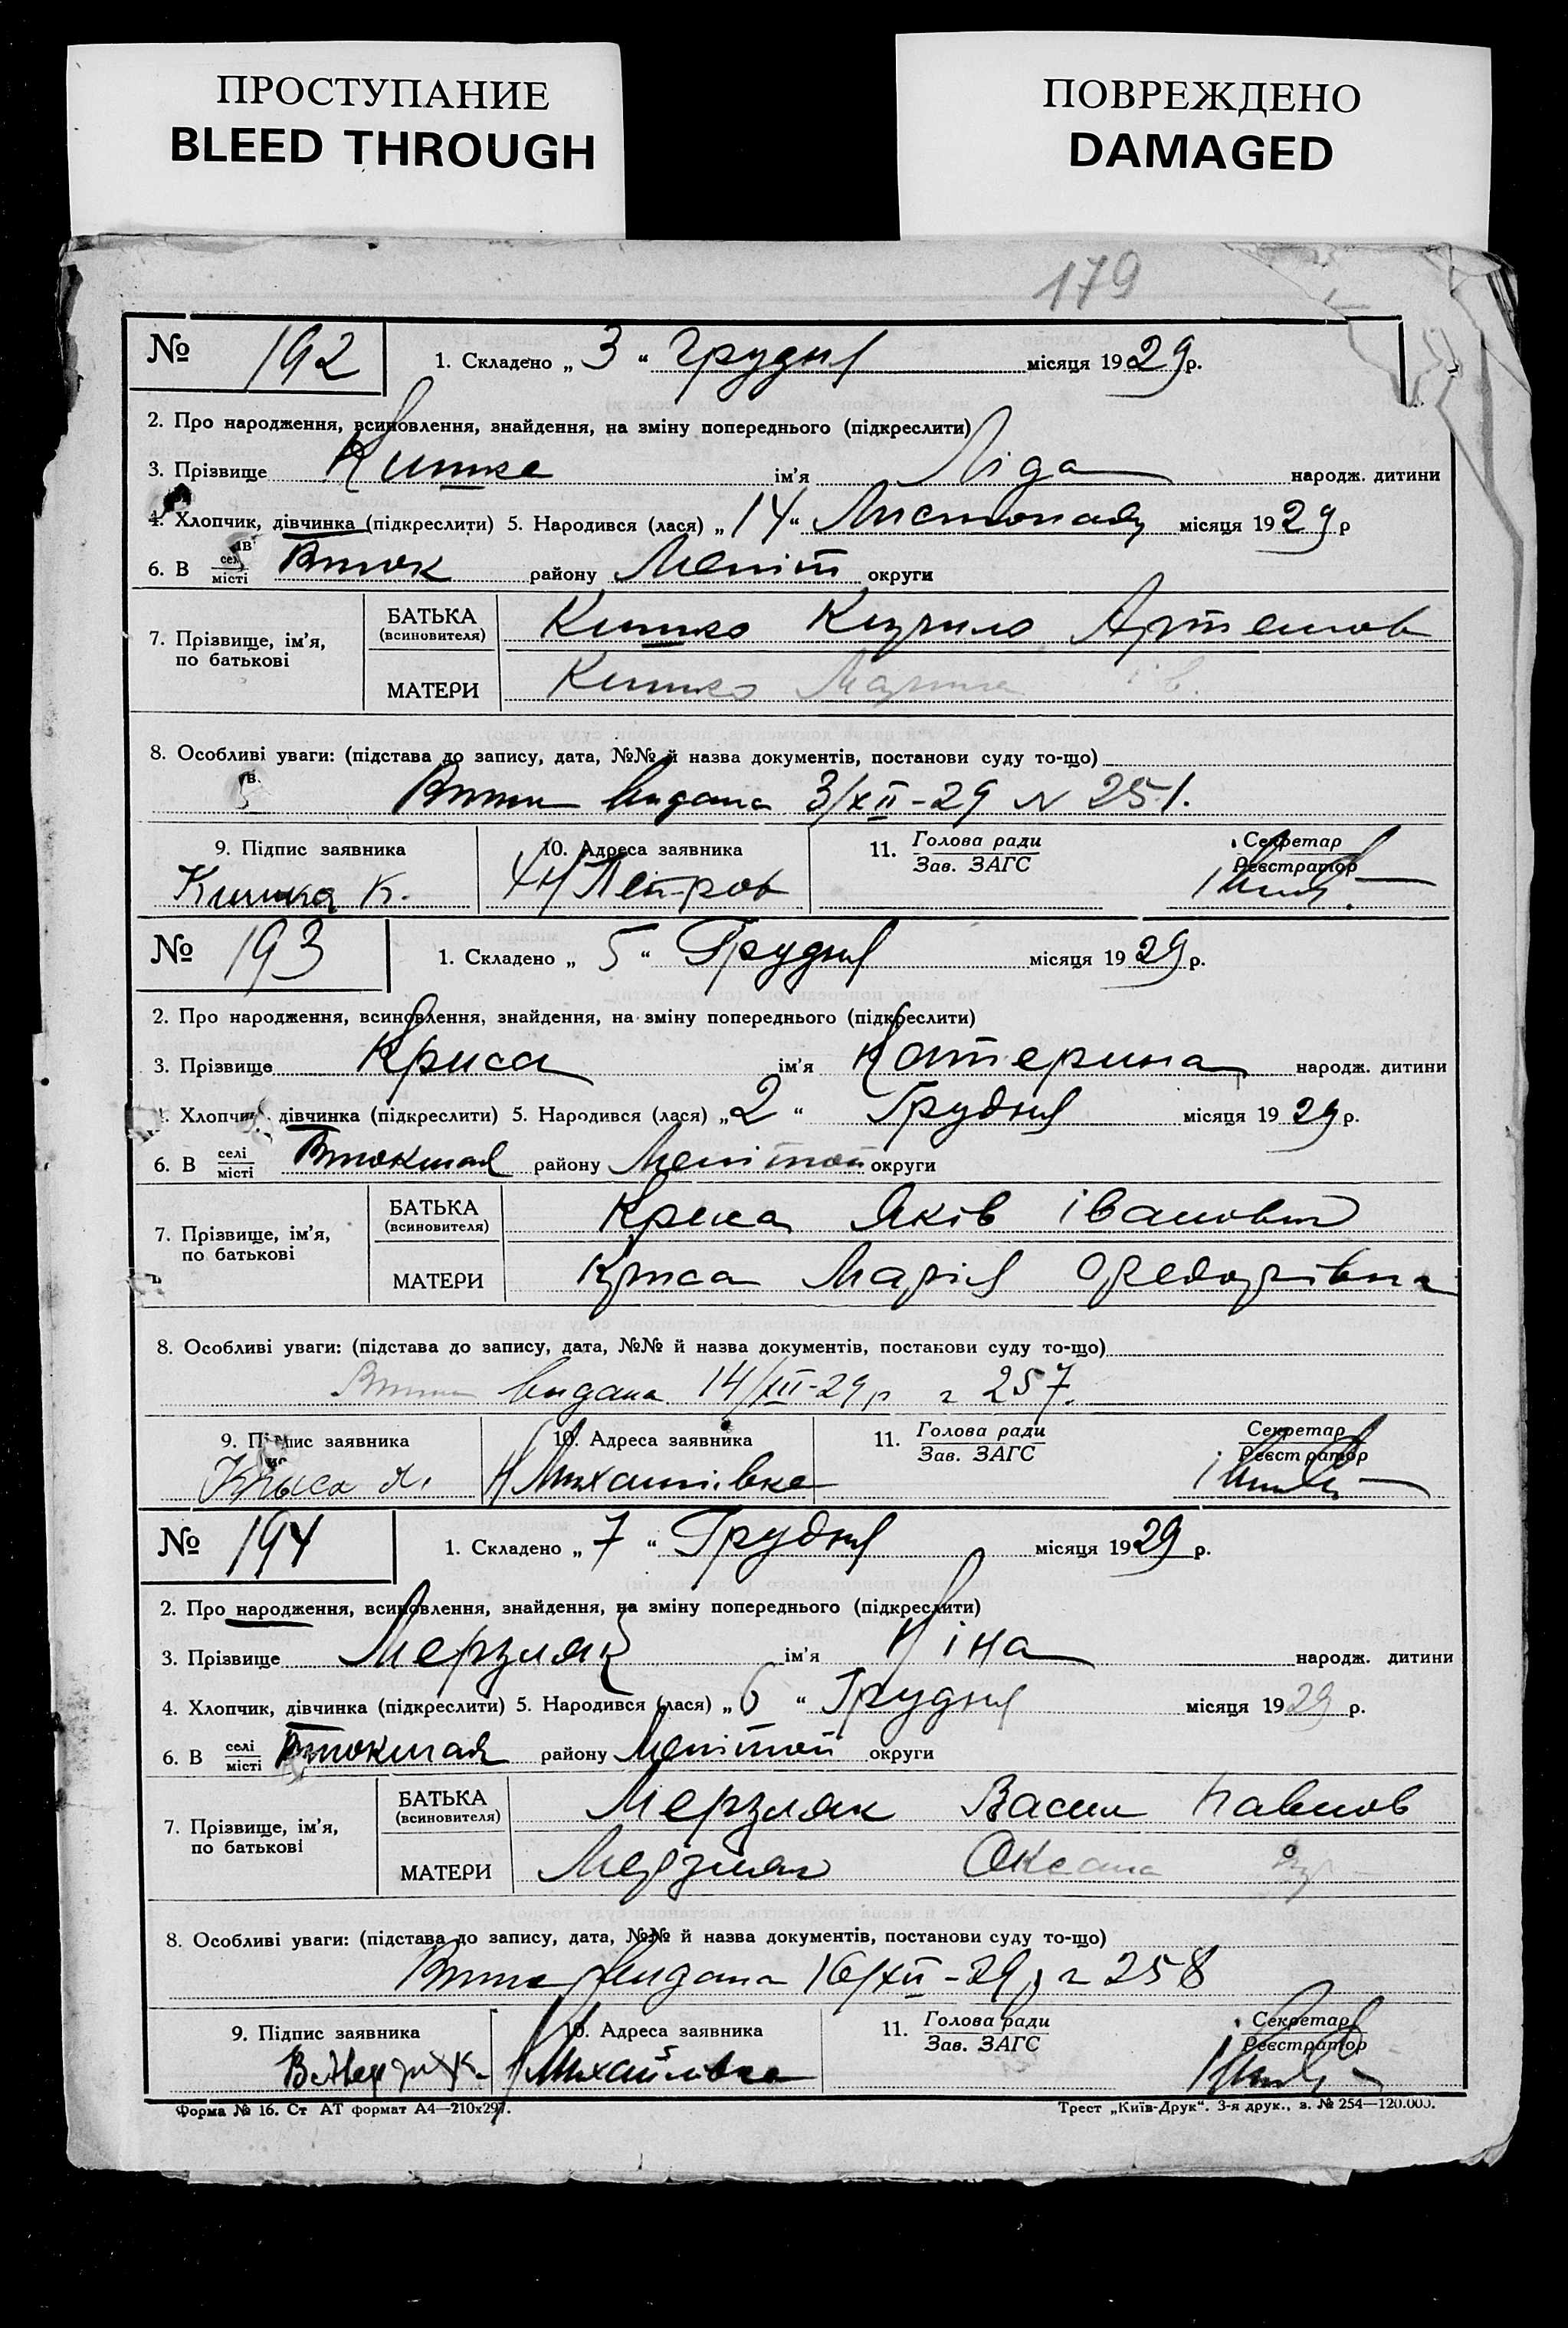 ПРОСТУПАНИЕ
BLEED THROUGH
ПОВРЕЖДЕНО
DAMAGED
179
№ 192 1. Складено „ 3 “ Грудня місяця 1929 р.
2. Про народження, всиновлення, знайдення, на зміну попереднього (підкреслити)
3. Прізвище Кишка ім'я Ліда народж. дитини
4. Хлопчик, дівчинка (підкреслити) 5. Народився (лася) „ 14 “ Листопаду місяця 1929 р
6. В місті району Меліт округи
7. Прізвище, ім'я, по батькові
БАТЬКА (всиновителя) Кишко Кирило Артемов
МАТЕРИ Кишко Марина
8. Особливі уваги: (підстава до запису, дата, №№ й назва документів, постанови суду то-що)
видана 3/XII-29 N 251.
9. Підпис заявника 10. Адреса заявника 11. Голова ради Зав. ЗАГС Секретар Реєстратор
Кишка К. Петров
№ 193 1. Складено „ 5 “ Грудня місяця 1929 р.
2. Про народження, всиновлення, знайдення, на зміну попереднього (підкреслити)
3. Прізвище Криса ім'я Катерина народж. дитини
Хлопчик, дівчинка (підкреслити) 5. Народився (лася) „ 2 “ Грудня місяця 1929 р.
6. В селі місті району округи
7. Прізвище, ім'я, по батькові
БАТЬКА (всиновителя) Криса Яків Іванович
МАТЕРИ Криса Марія Федорівна
8. Особливі уваги: (підстава до запису, дата, №№ й назва документів, постанови суду то-що)
видана 14/XII-29 р 257.
9. Підпис заявника 10. Адреса заявника 11. Голова ради Зав. ЗАГС Секретар Реєстратор
Крыса Я. Н Михайлівка
№ 194 1. Складено „ 7 “ Грудня місяця 1929 р.
2. Про народження, всиновлення, знайдення, на зміну попереднього (підкреслити)
3. Прізвище Мерзляк ім'я Ніна народж. дитини
4. Хлопчик, дівчинка (підкреслити) 5. Народився (лася) „ 6 “ Грудня місяця 1929 р.
6. В селі місті району округи
7. Прізвище, ім'я, по батькові
БАТЬКА (всиновителя) Мерзляк Васил Павлов
МАТЕРИ Мерзляк Оксана
8. Особливі уваги: (підстава до запису, дата, №№ й назва документів, постанови суду то-що)
видана 16/XII-29 р 258
9. Підпис заявника 10. Адреса заявника 11. Голова ради Зав. ЗАГС Секретар Реєстратор
Н Михайлівка
Форма № 16. Ст АТ формат А4—210х297.
Трест „Київ-Друк“. 3-я друк., з. № 254—120.000.